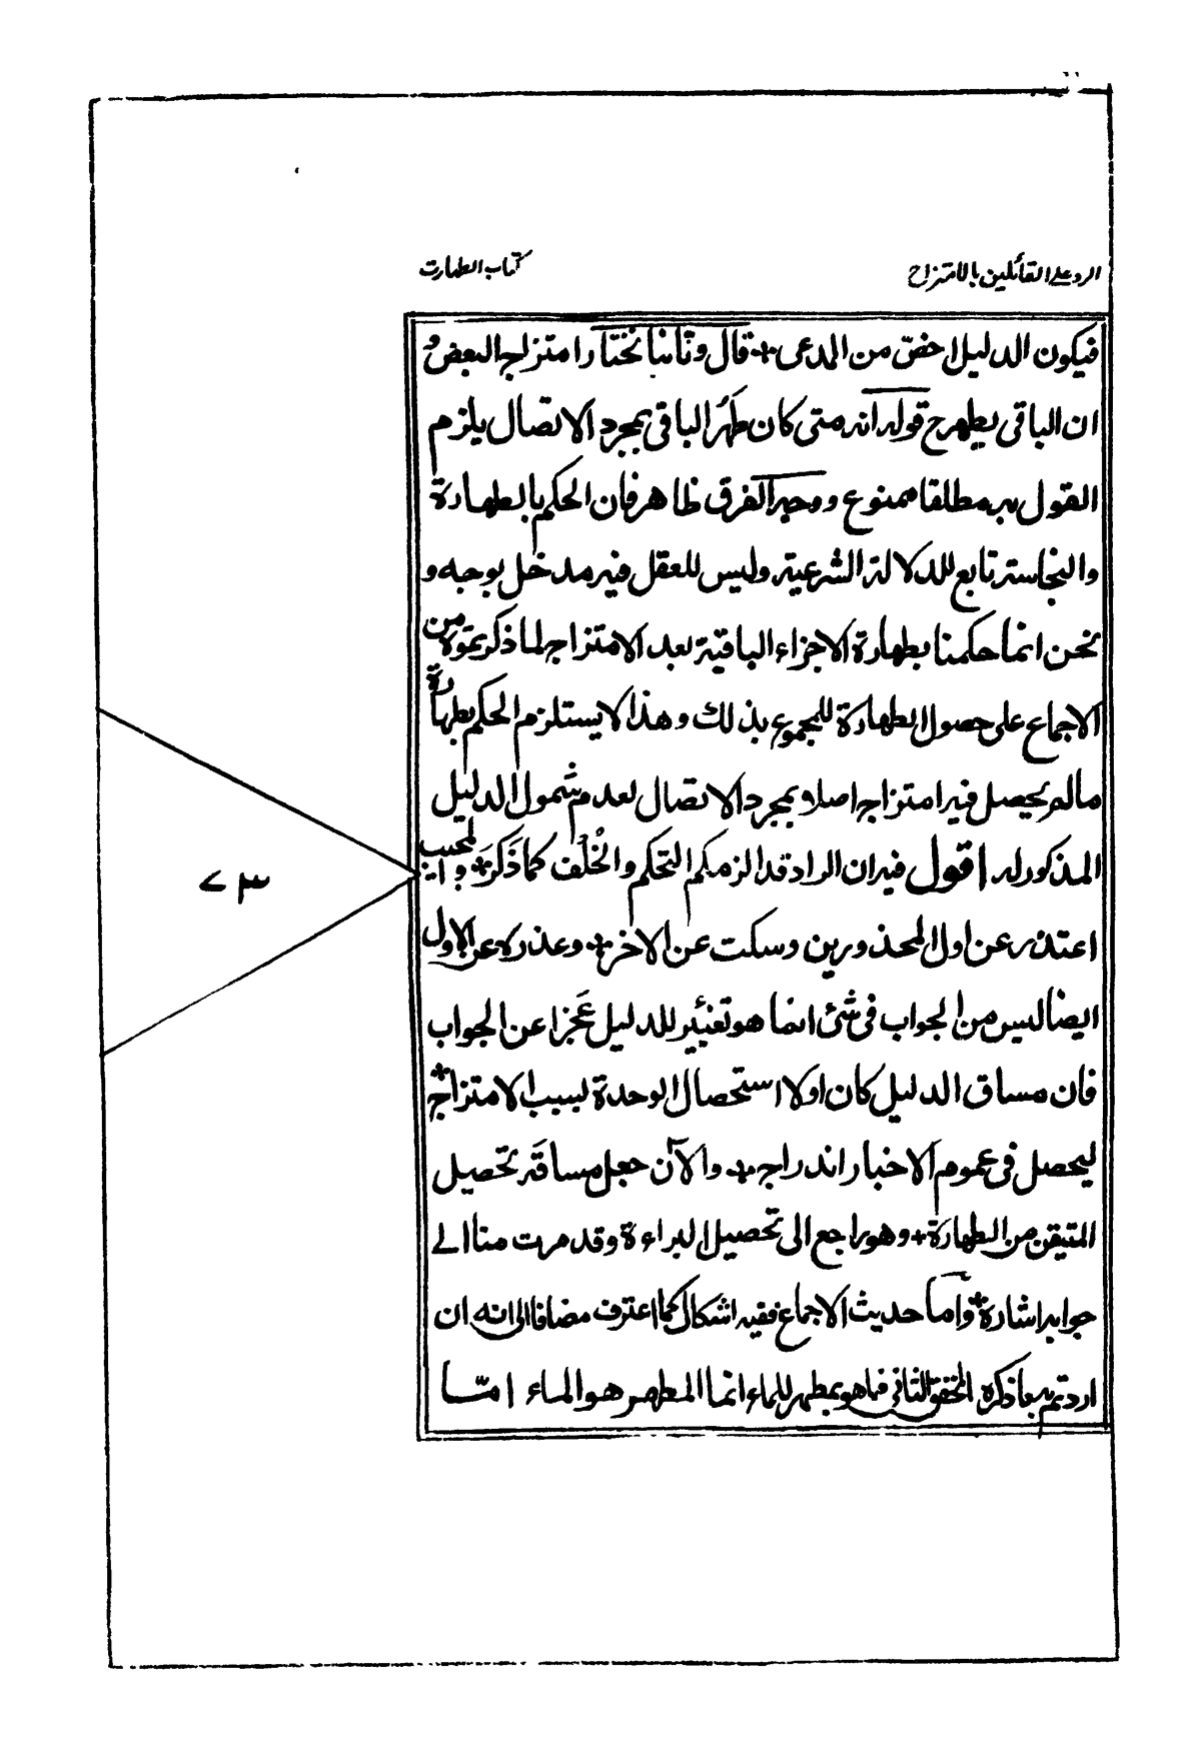 الرد على القائلين بالامتزاج
كتاب الطهارت
فيكون الدليل اخص من المدعى + قال وثانيا نختار امتزاج البعض و
ان الباقى يطهر ح قوله انه متى كان طُهْرُ الباقى بمجرد الاتصال يلزم
القول به مطلقا ممنوع ووجه الفرق ظاهر فان الحكم بالطهارة
والنجاسة تابع للدلالة الشرعية وليس للعقل فيه مدخل بوجه و
نحن انما حكمنا بطهارة الاجزاء الباقية بعد الامتزاج لما ذكرتموه من
الاجماع على حصول الطهارة للمجموع بذلك وهذا لا يستلزم الحكم بطهارة
مالم يحصل فيه امتزاج اصلا و بمجرد الاتصال لعدم شمول الدليل
المذكور له اقول فيه ان الراد قد الزمكم التحكم والخُلْف كما ذَكرَ + و المجيب
اعتذر عن اول المحذورين وسكت عن الاخر + وعذره عن الاول
ايضا ليس من الجواب فى شئ انما هو تغيير للدليل عَجزا عن الجواب
فان مساق الدليل كان اولا استحصال الوحدة بسبب الامتزاج +
ليحصل فى عموم الاخبار اندراج + والآن جعل مساقَه تحصيل
المتيقن من الطهارة + وهو راجع الى تحصيل البراءة وقد مرت منا الے
جوابه اشارة + وأما حديث الاجماع ففيه اشكال كما اعترف مضافا الى انه ان
اردتم به ما ذكره المحقق الثانى فما هو بمطهر للماء انما المطهر هو الماء امّا
٧٣